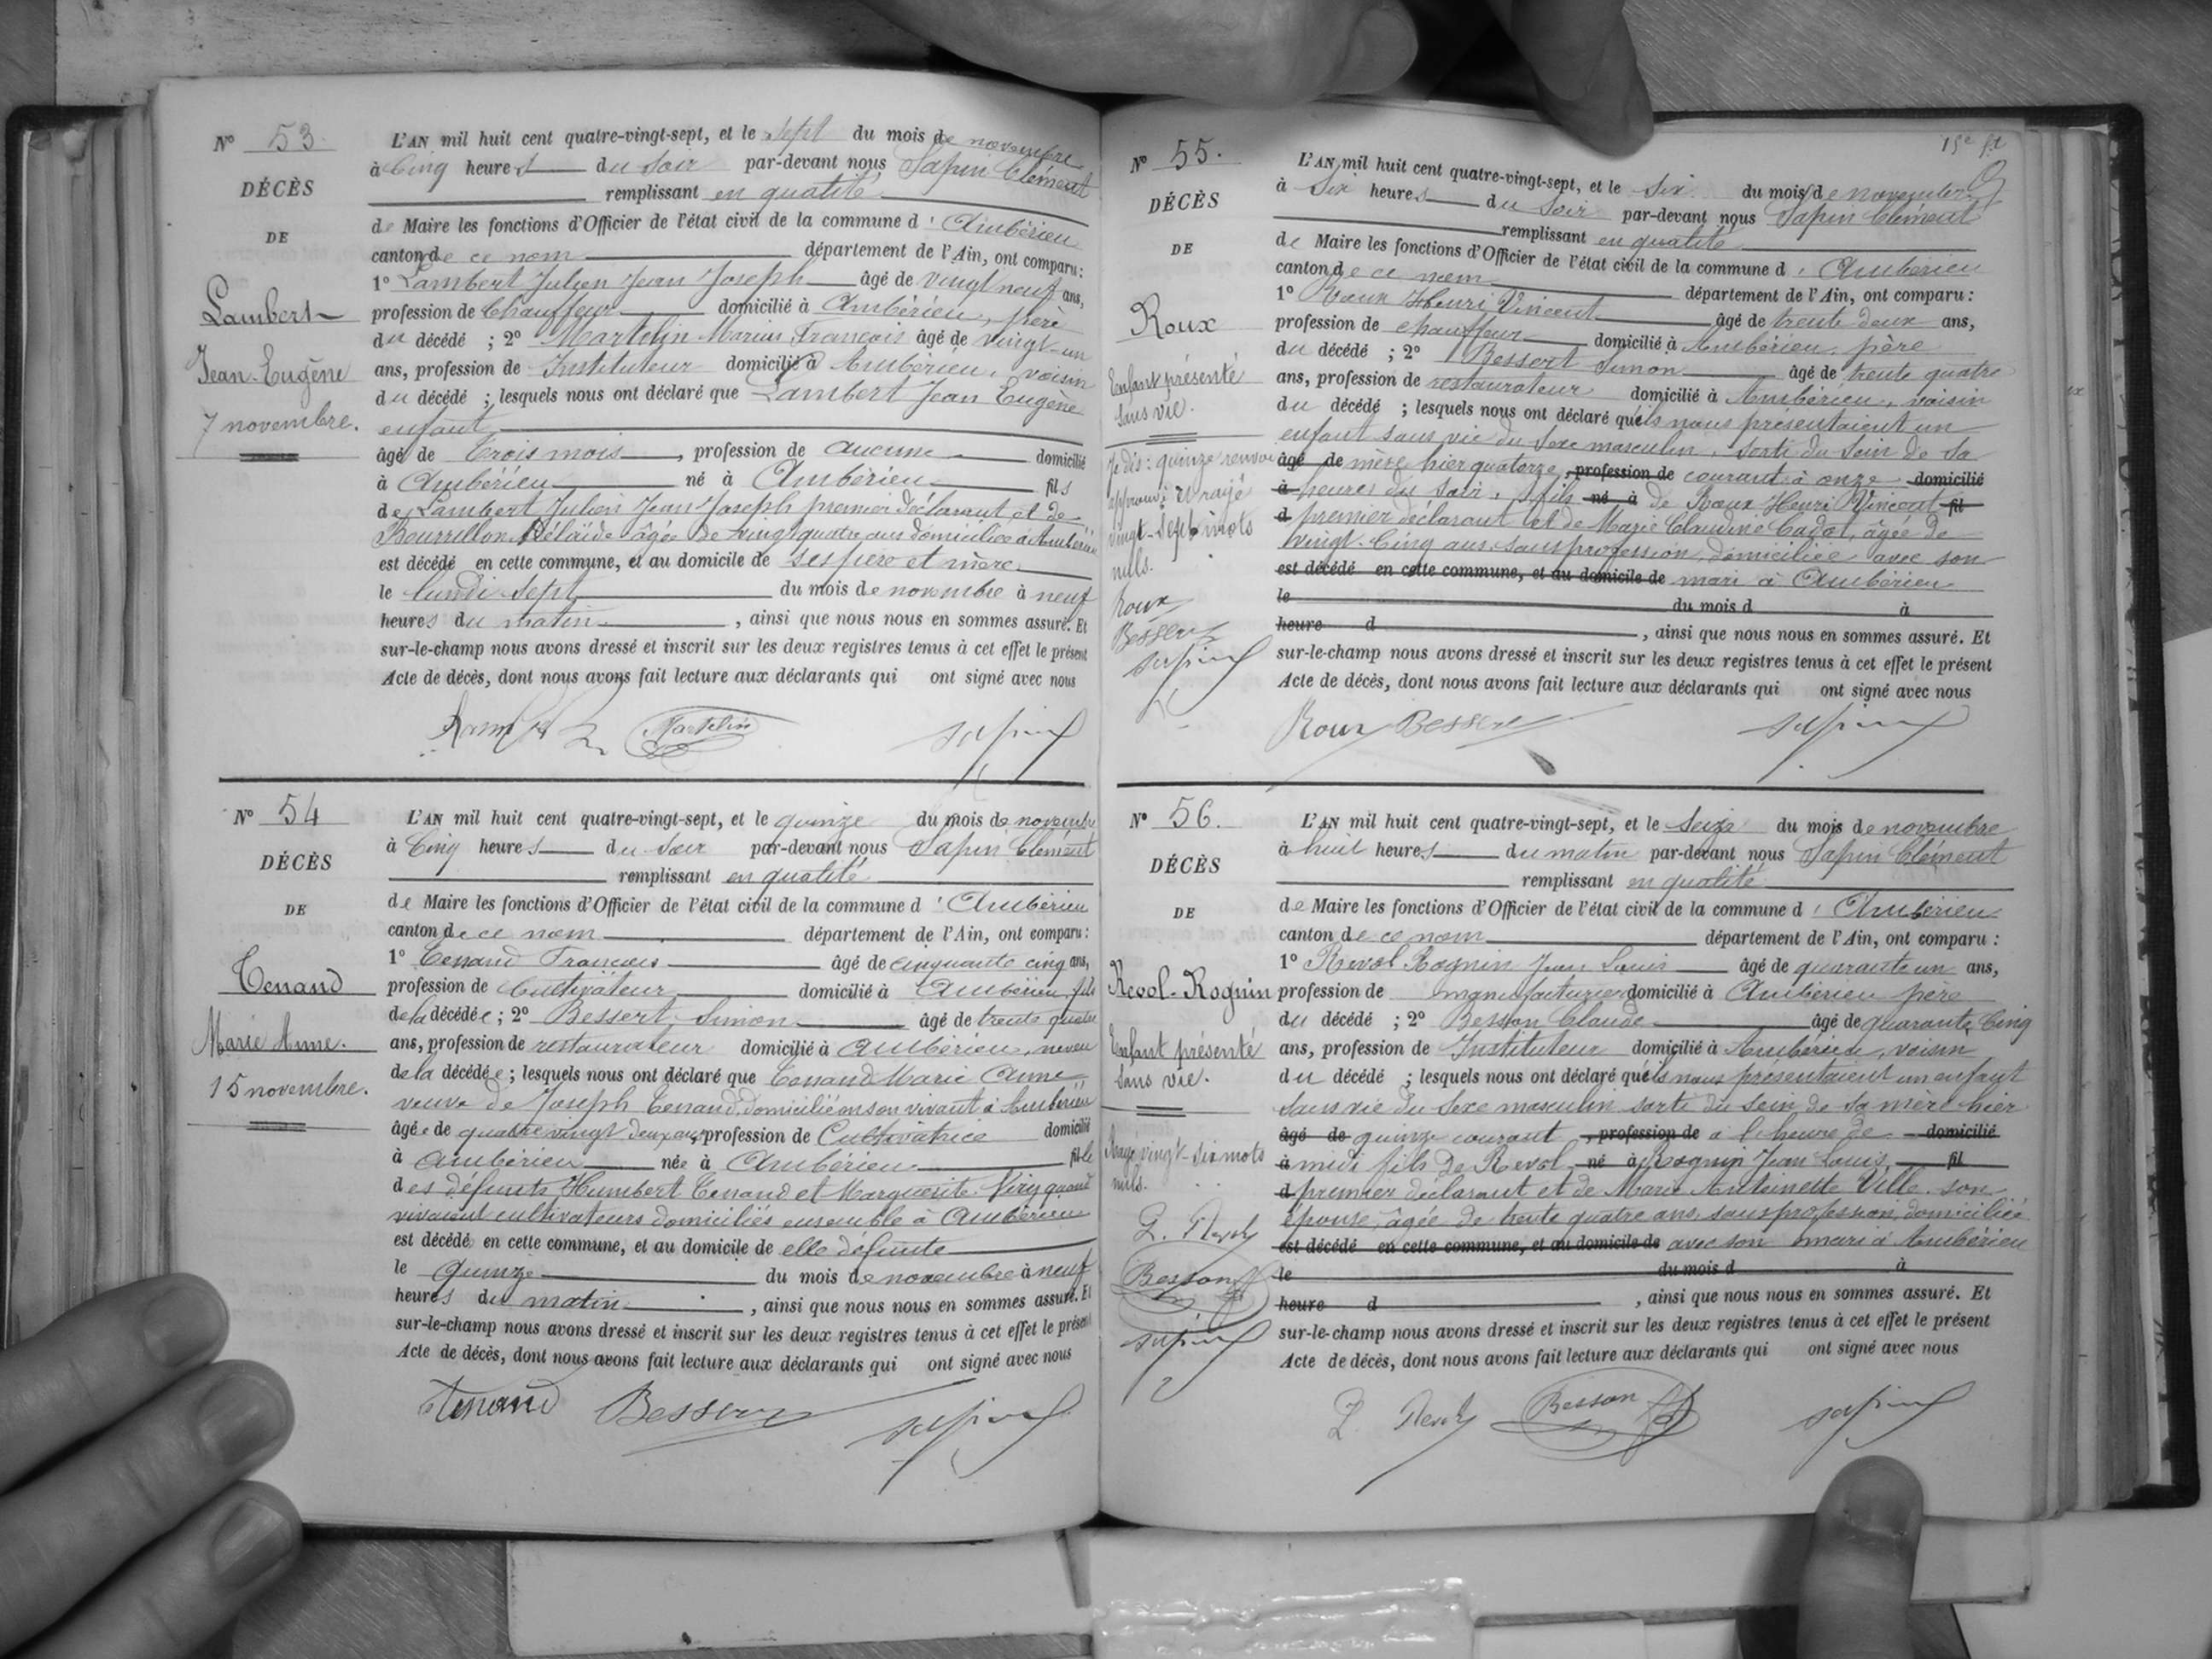 N° 53.
DÉCÈS
DE
Lambert
Jean-Eugène
7 novembre.
L'AN mil huit cent quatre-vingt-sept, et le sept du mois de novembre
à Cinq heures du soir par-devant nous Sapin Clément
remplissant en qualité
de Maire les fonctions d'Officier de l'état civil de la commune d'Ambérieu
canton de ce nom département de l'Ain, ont comparu :
1° Lambert Julien Jean Joseph âgé de vingt neuf ans,
profession de Chauffeur domicilié à Ambérieu, père
du décédé ; 2° Martelin Marius François âgé de vingt-un
ans, profession de Instituteur domicilié à Ambérieu, voisin
du décédé ; lesquels nous ont déclaré que Lambert Jean Eugène
enfant
âgé de trois mois, profession de aucune domicilié
à Ambérieu né à Ambérieu fils
de Lambert Julien Jean Joseph premier déclarant et de
Bourrillon Adélaïde âgée de vingt quatre ans domiciliée à Ambérieu
est décédé en cette commune, et au domicile de ses père et mère
le lundi sept du mois de novembre à neuf
heures du matin, ainsi que nous nous en sommes assuré. Et
sur-le-champ nous avons dressé et inscrit sur les deux registres tenus à cet effet le présent
Acte de décès, dont nous avons fait lecture aux déclarants qui ont signé avec nous
Martelin Sapin
N° 54
DÉCÈS
DE
Tenand
Marie Anne.
15 novembre.
L'AN mil huit cent quatre-vingt-sept, et le quinze du mois de novembre
à Cinq heures du soir par-devant nous Sapin Clément
remplissant en qualité
de Maire les fonctions d'Officier de l'état civil de la commune d'Ambérieu
canton de ce nom département de l'Ain, ont comparu :
1° Tenand François âgé de cinquante cinq ans,
profession de Cultivateur domicilié à Ambérieu, fils
de la décédée ; 2° Bessert Simon âgé de trente quatre
ans, profession de restaurateur domicilié à Ambérieu, neveu
de la décédée ; lesquels nous ont déclaré que Tenand Marie Anne
veuve de Joseph Tenand, domicilié en son vivant à Ambérieu
âgée de quatre vingt deux ans, profession de Cultivatrice domicilié
à Ambérieu née à Ambérieu fille
des défunts Humbert Tenand et Marguerite Viry quand
vivaient cultivateurs domiciliés ensemble à Ambérieu
est décédé en cette commune, et au domicile de elle défunte
le quinze du mois de novembre à neuf
heures du matin, ainsi que nous nous en sommes assuré. Et
sur-le-champ nous avons dressé et inscrit sur les deux registres tenus à cet effet le présent
Acte de décès, dont nous avons fait lecture aux déclarants qui ont signé avec nous
Tenand Bessert Sapin
15e ft
N° 55.
DÉCÈS
DE
Roux
Enfant présenté
sans vie.
Je dis : quinze renvoi
approuvé et rayé
vingt-sept mots
nuls.
Roux
Bessert
Sapin
L'AN mil huit cent quatre-vingt-sept, et le six du mois de novembre
à six heures du soir par-devant nous Sapin Clément
remplissant en qualité
de Maire les fonctions d'Officier de l'état civil de la commune d'Ambérieu
canton de ce nom département de l'Ain, ont comparu :
1° Roux Henri Vincent âgé de trente deux ans,
profession de chauffeur domicilié à Ambérieu, père
du décédé ; 2° Bessert Simon âgé de trente quatre
ans, profession de restaurateur domicilié à Ambérieu, voisin
du décédé ; lesquels nous ont déclaré qu'ils nous présentaient un
enfant sans vie du sexe masculin, sorti du sein de sa
âgé de mère hier quatorze, profession de courant à onze domicilié
à heures du soir, fils né à de Roux Henri Vincent fil
d premier déclarant et de Marie Claudine Cadot, âgée de
vingt-Cinq ans sans profession, domiciliée avec son
est décédé en cette commune, et au domicile de mari à Ambérieu
le du mois d à
heure d , ainsi que nous nous en sommes assuré. Et
sur-le-champ nous avons dressé et inscrit sur les deux registres tenus à cet effet le présent
Acte de décès, dont nous avons fait lecture aux déclarants qui ont signé avec nous
Roux Bessert Sapin
N° 56.
DÉCÈS
DE
Revol-Rognin
Enfant présenté
sans vie.
Rayé vingt-six mots
nuls.
Besson
Sapin
L'AN mil huit cent quatre-vingt-sept, et le seize du mois de novembre
à huit heures du matin par-devant nous Sapin Clément
remplissant en qualité
de Maire les fonctions d'Officier de l'état civil de la commune d'Ambérieu
canton de ce nom département de l'Ain, ont comparu :
1° Revol Rognin Jean Louis âgé de quarante un ans,
profession de manufacturier domicilié à Ambérieu père
du décédé ; 2° Besson Claude âgé de quarante Cinq
ans, profession de Instituteur domicilié à Ambérieu, voisin
du décédé ; lesquels nous ont déclaré qu'ils nous présentaient un enfant
sans vie du sexe masculin sorti du sein de sa mère hier
âgé de quinze courant, profession de à l'heure de domicilié
à midi fils de Revol né à Rognin Jean Louis, fil
d premier déclarant et de Marie Antoinette Ville son
épouse, âgée de trente quatre ans, sans profession, domiciliée
est décédé en cette commune, et au domicile de avec son mari à Ambérieu
le du mois d à
heure d , ainsi que nous nous en sommes assuré. Et
sur-le-champ nous avons dressé et inscrit sur les deux registres tenus à cet effet le présent
Acte de décès, dont nous avons fait lecture aux déclarants qui ont signé avec nous
Besson Sapin